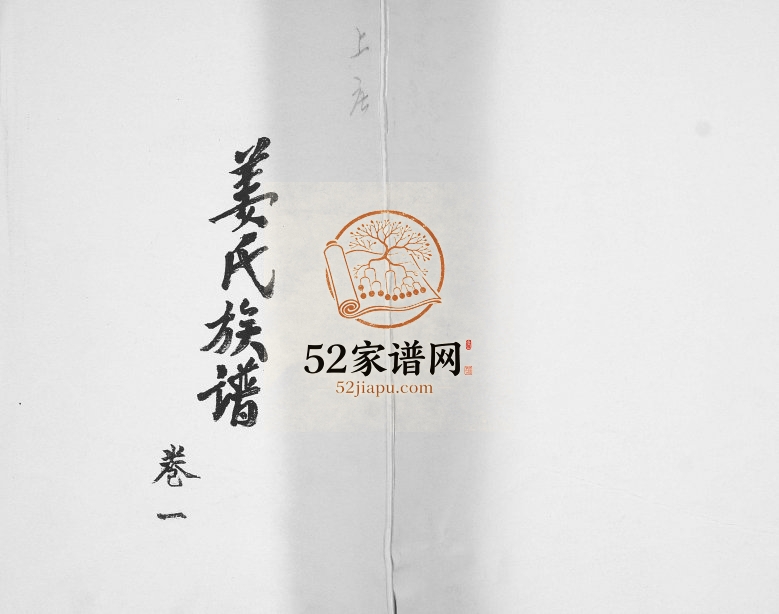 上
姜氏族谱
卷一
52家谱网
52jiapu.com